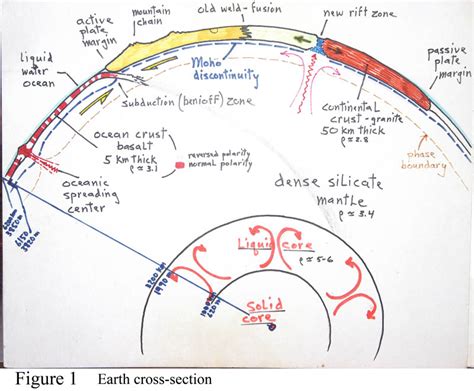 old weld-fusion
new rift zone
mountain
chain
active
plate
margin
passive
plate
margin
liquid
water
ocean
Moho
discontinuity
subduction (benioff) zone
continental
crust-granite
50 km thick
ρ ≈ 2.8
phase
boundary
ocean crust
basalt
5 km thick
ρ ≈ 3.1
reversed polarity
normal polarity
oceanic
spreading
center
dense silicate
mantle
ρ ≈ 3.4
3950 mi
6150
3820 mi
Liquid core
ρ ≈ 5-6
3200 km
1970 mi
620 mi
Solid
core
Figure 1 Earth cross-section